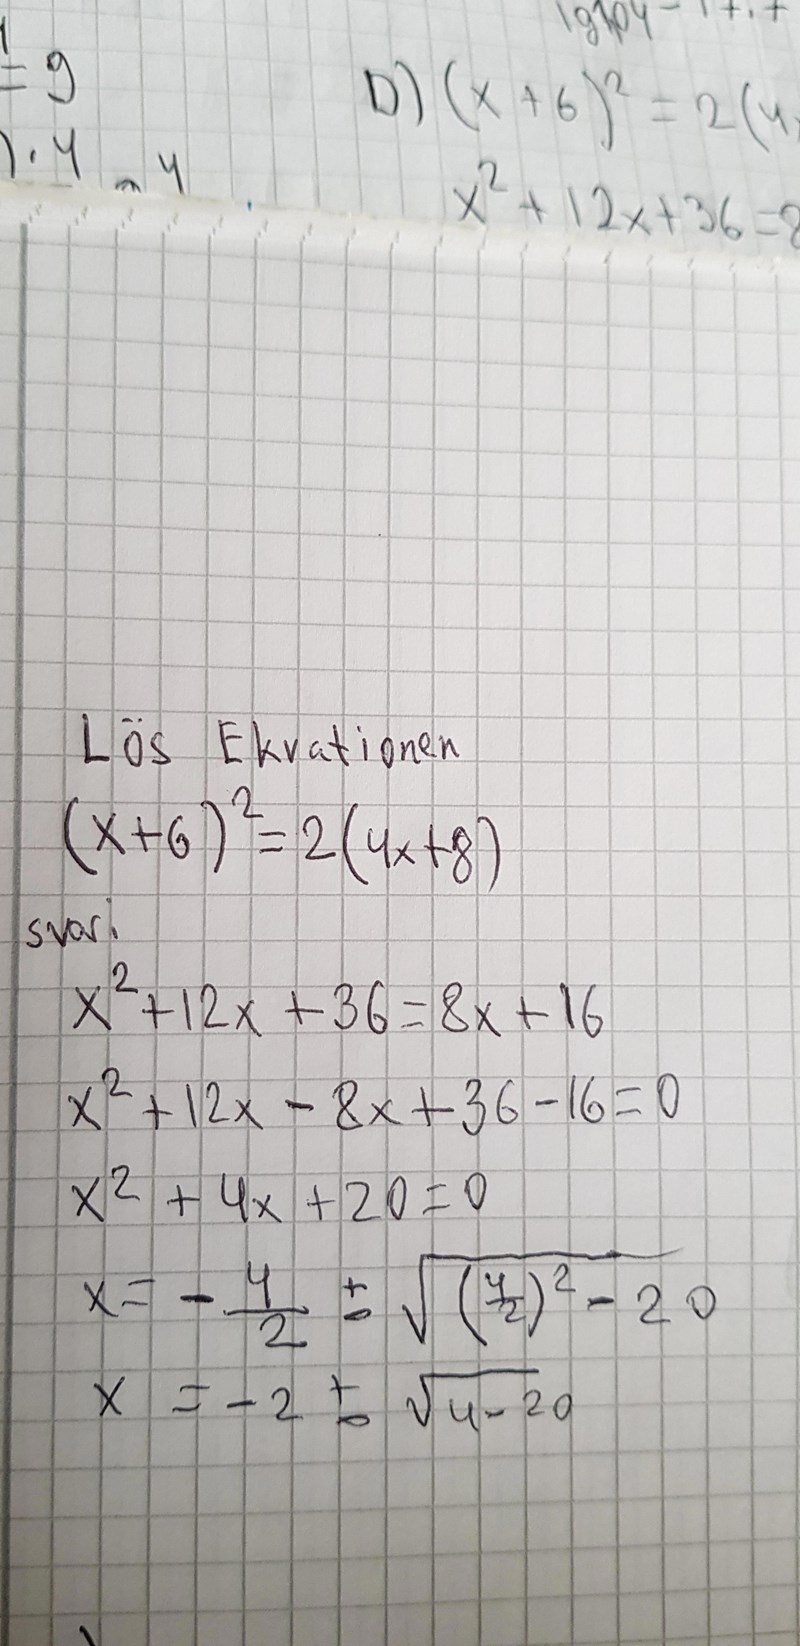 = 9
D) (x+6)² = 2(4x
x² + 12x+36 = 8
Lös Ekvationen
(x+6)² = 2(4x+8)
svar:
x² + 12x + 36 = 8x + 16
x² + 12x - 8x + 36 - 16 = 0
x² + 4x + 20 = 0
x = - 4/2 ± √((4/2)² - 20)
x = -2 ± √(4-20)